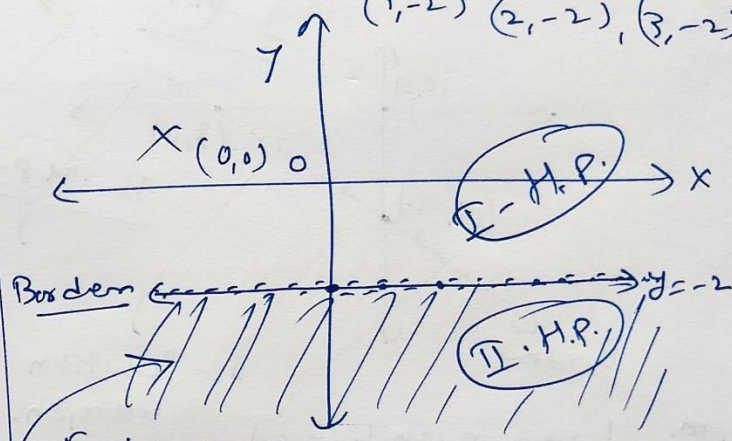 (1,-2) (2,-2), (3,-2)
Y
X (0,0) 0
I - H.P.
X
Border
y = -2
II. H.P.